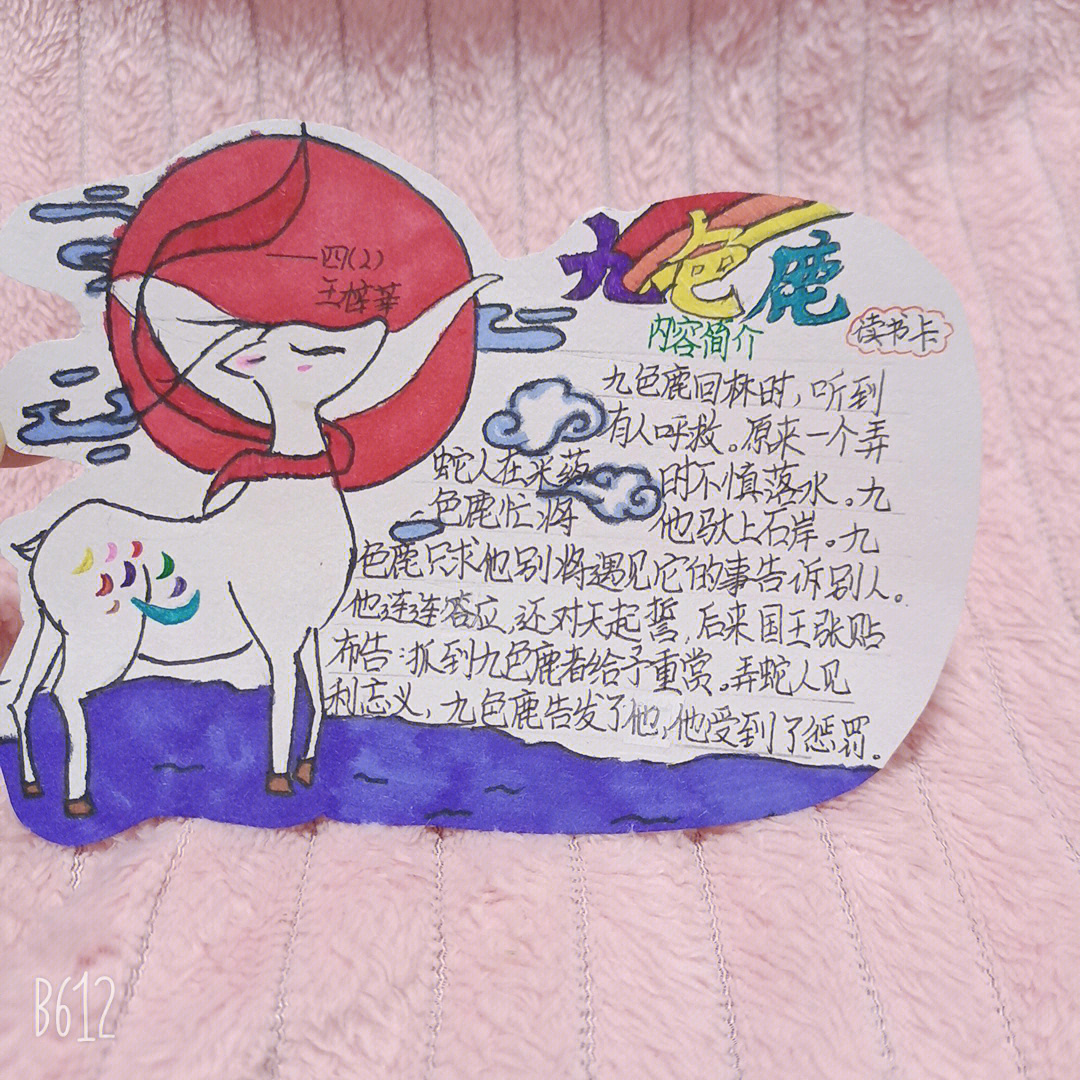 ——四(2)
九色鹿
内容简介
读书卡
九色鹿回林时,听到
有人呼救。原来一个弄
蛇人在采药时不慎落水。九
色鹿忙将他驮上石岸。九
色鹿只求他别将遇见它的事告诉别人。
他连连答应,还对天起誓,后来国王张贴
布告:抓到九色鹿者给予重赏。弄蛇人见
利忘义,九色鹿告发了他,他受到了惩罚。
B612